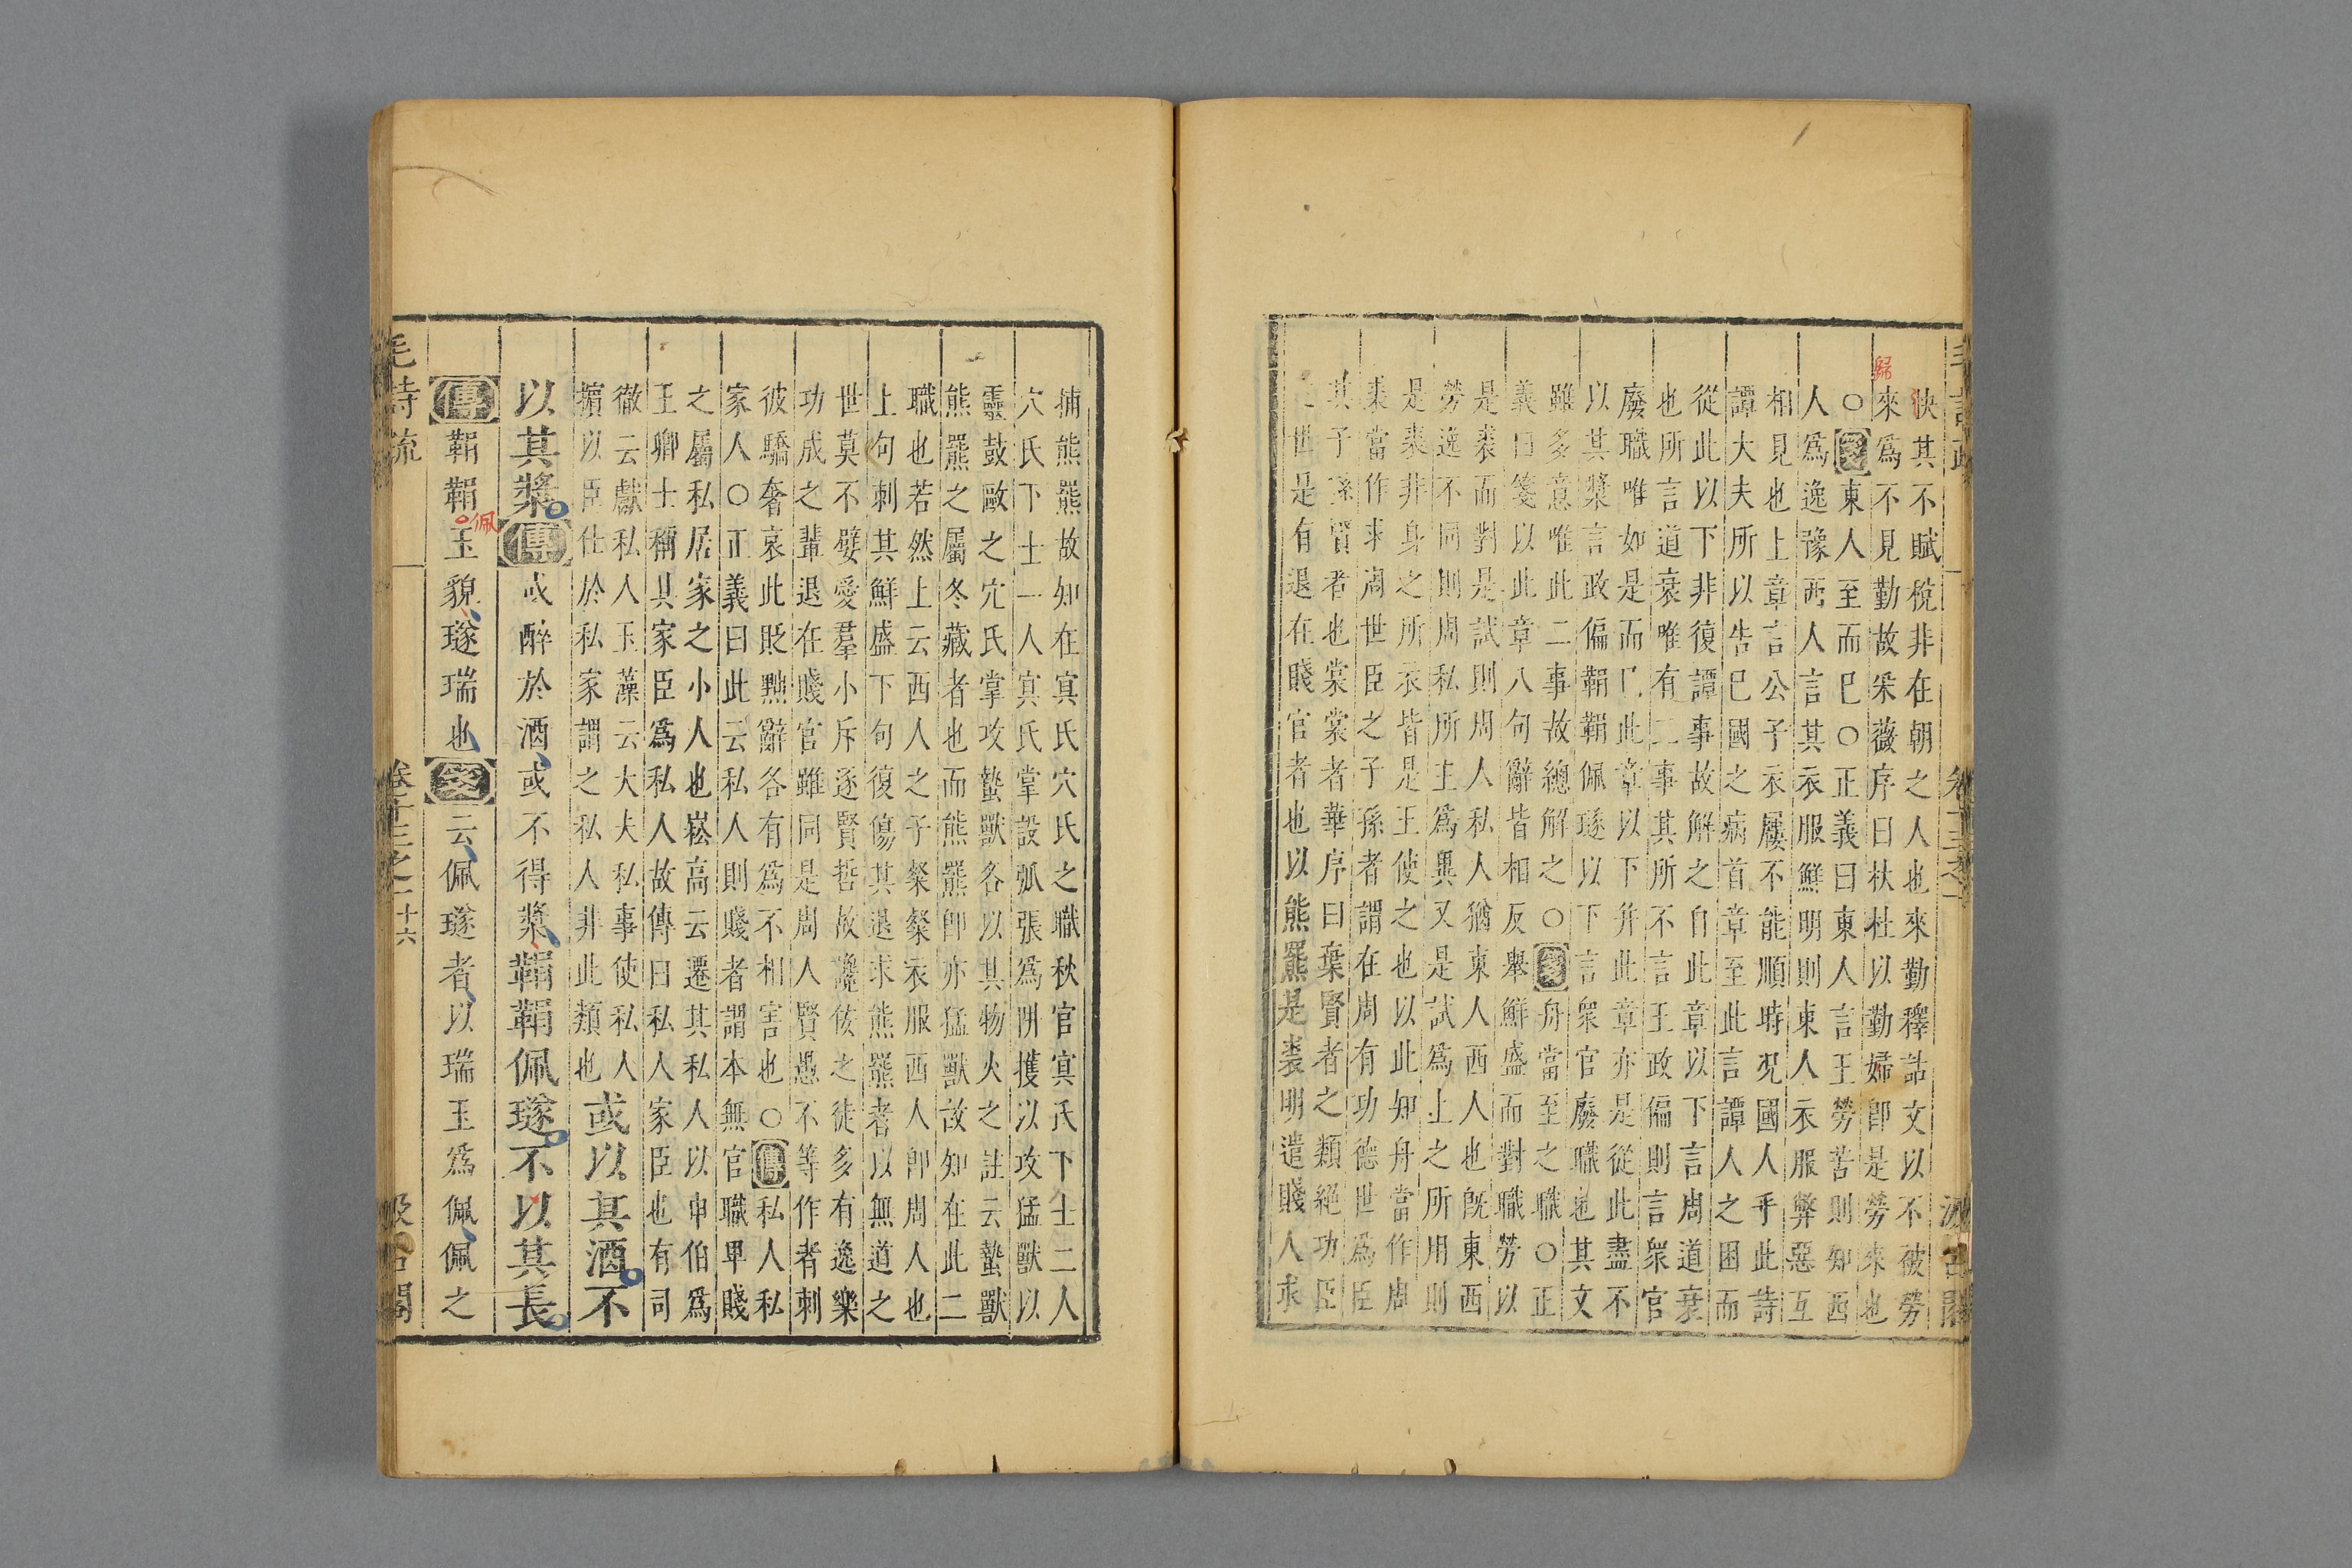 快其不賦稅非在朝之人也來勤釋詁文以不被勞
來為不見勤故采薇序曰杕杜以勤婦即是勞來也
歸
○箋東人至而已○正義曰東人言王勞苦則知西
人為逸豫西人言其衣服鮮明則東人衣服弊惡互
相見也上章言公子衣屨不能順時況國人乎此詩
譚大夫所以告已國之病首章至此言譚人之困而
從此以下非復譚事故解之自此章以下言周道衰
也所言道衰唯有二事其所不言王政偏則言衆官
廢職唯如是而已此章以下并此章亦是從此盡不
以其漿言政偏鞙鞙佩璲以下言衆官廢職也其文
雖多意唯此二事故總解之○箋舟當至之職○正
義曰箋以此章八句辭皆相反舉鮮盛而對職勞以
是裘而對是試則周人私人猶東人西人也既東西
勞逸不同則周私所主為異又是試為上之所用則
是裘非身之所衣皆是王使之也以此知舟當作周
裘當作求周世臣之子孫者謂在周有功德世為臣
其子孫賢者也裳裳者華序曰棄賢者之類絕功臣
之世是有退在賤官者也以熊羆是裘明遣賤人求
捕熊羆故知在冥氏穴氏之職秋官冥氏下士二人
穴氏下士一人冥氏掌設弧張為阱擭以攻猛獸以
靈鼓毆之穴氏掌攻蟄獸各以其物火之註云蟄獸
熊羆之屬冬藏者也而熊羆即亦猛獸故知在此二
職也若然上云西人之子粲粲衣服西人即周人也
上句刺其鮮盛下句復傷其退求熊羆者以無道之
世莫不嬖愛羣小斥逐賢哲故讒佞之徒多有逸樂
功成之輩退在賤官雖同是周人賢愚不等作者刺
彼驕奢哀此貶黜辭各有為不相害也○傳私人私
家人○正義曰此云私人則賤者謂本無官職卑賤
之屬私居家之小人也崧高云遷其私人以申伯為
王卿士稱其家臣為私人故傳曰私人家臣也有司
徹云獻私人玉藻云大夫私事使私人
擯以臣仕於私家謂之私人非此類也
或以其酒不
以其漿傳或醉於酒或不得漿鞙鞙佩璲不以其長
傳鞙鞙玉貌璲瑞也箋云佩璲者以瑞玉為佩佩之
佩
毛詩疏
卷十三之一
十六
汲古閣